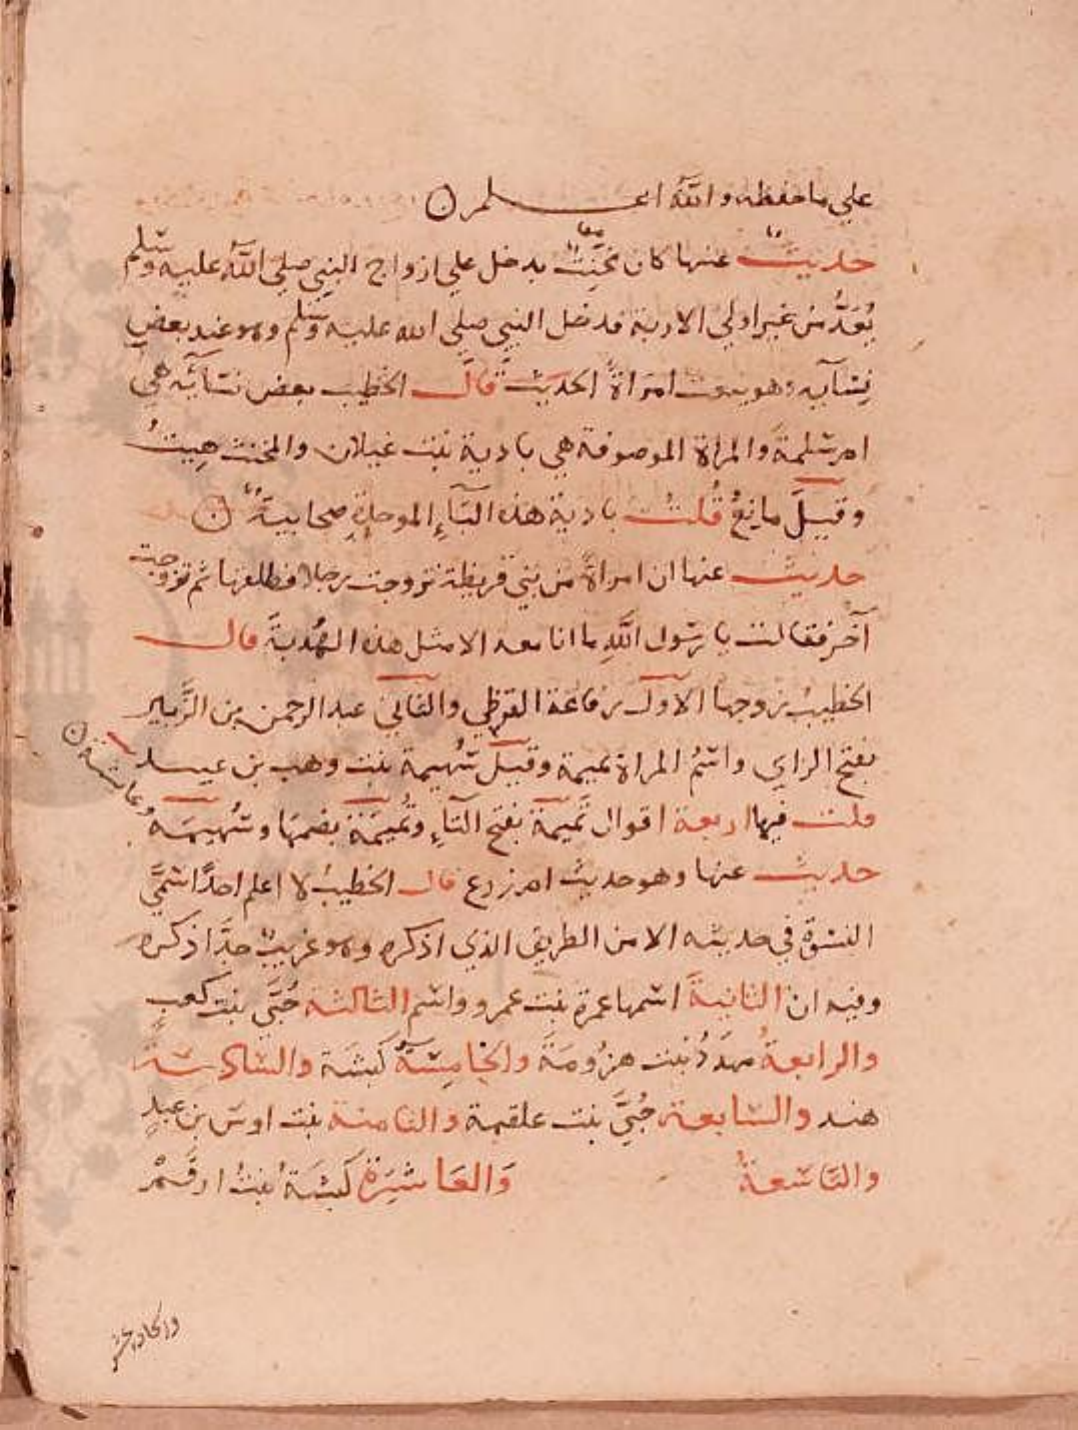 علي ما حفظه والله اعلم ○
حديث عنها كان مخنث يدخل علي ازواج النبي صلي الله عليه وسلم
يُعَدُّ من غير اولي الاربة فدخل النبي صلي الله عليه وسلم وهو عند بعض
نسآيه وهو ينعت امراةً الحديث قال الخطيب بعض نسآئه هي
ام سلمة والمراة الموصوفة هي بادية بنت غيلان والمخنث هيتُ
وقيل مانعٌ قُلتُ بادية هذه البآءِ الموحدةِ صحابيةٌ ○
حديث عنها ان امراةً من بني قريظة تزوجت رجلا فطلقها ثم تزوجت
آخر فقالت يا رسول اللهِ ما انا معه الا مثل هذه الهُدبةَ قال
الخطيبُ زوجها الاول رفاعة القرظي والثاني عبد الرحمن بن الزَّبير
بفتح الزاي واسمُ المراة تميمة وقيل سُهيمة بنت وهب بن عبيد
قلت فيها اربعة اقوال تَميمة بفتح التآءِ وتُميمَة بضمها وسُهيمَة
وعايشة ○
حديث عنها وهو حديث ام زرع قال الخطيبُ لا اعلم احدًا سَمَّي
النسوة في حديثه الا من الطريق الذي اذكره وهو غريبٌ جدًّا ذكره
وفيه ان الثانيةَ اسمها عمرة بنت عمرو واسم الثالثة حُبَّي بنت كعب
والرابعةُ مهدَدُ بنت هزُومَةَ والخامِسَةُ كبشَة والسّادسةُ
هند والسابعة حُبَّي بنت علقمة والثامنة بنت اوس بن عبدٍ
والتَّاسعةُ وَالعَاشِرَةُ كَبشَةُ بنتُ ارقَمْ
والحادي عشر